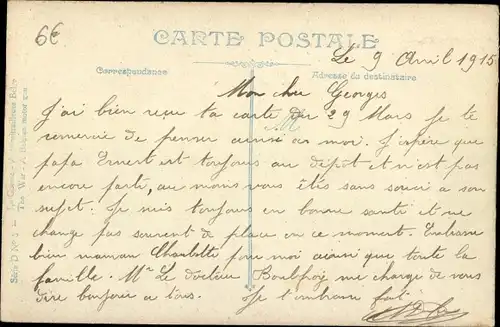 6€
CARTE POSTALE
Le 9 Avril 1915
Correspondance
Adresse du destinataire
Mon cher Georges
J'ai bien reçu ta carte du 29 Mars je te
remercie de penser ainsi à moi. J'espère que
papa Ernest est toujours au dépôt et n'est pas
encore parti, au moins vous êtes sans souci à son
sujet. Je suis toujours en bonne santé et ne
change pas souvent de place en ce moment. Embrasse
bien maman Charlotte pour moi ainsi que toute la
famille. Mr Le docteur me charge de vous
dire bonjour à tous. Je t'embrasse
Série D No 5
The War - A Belgian motor gun